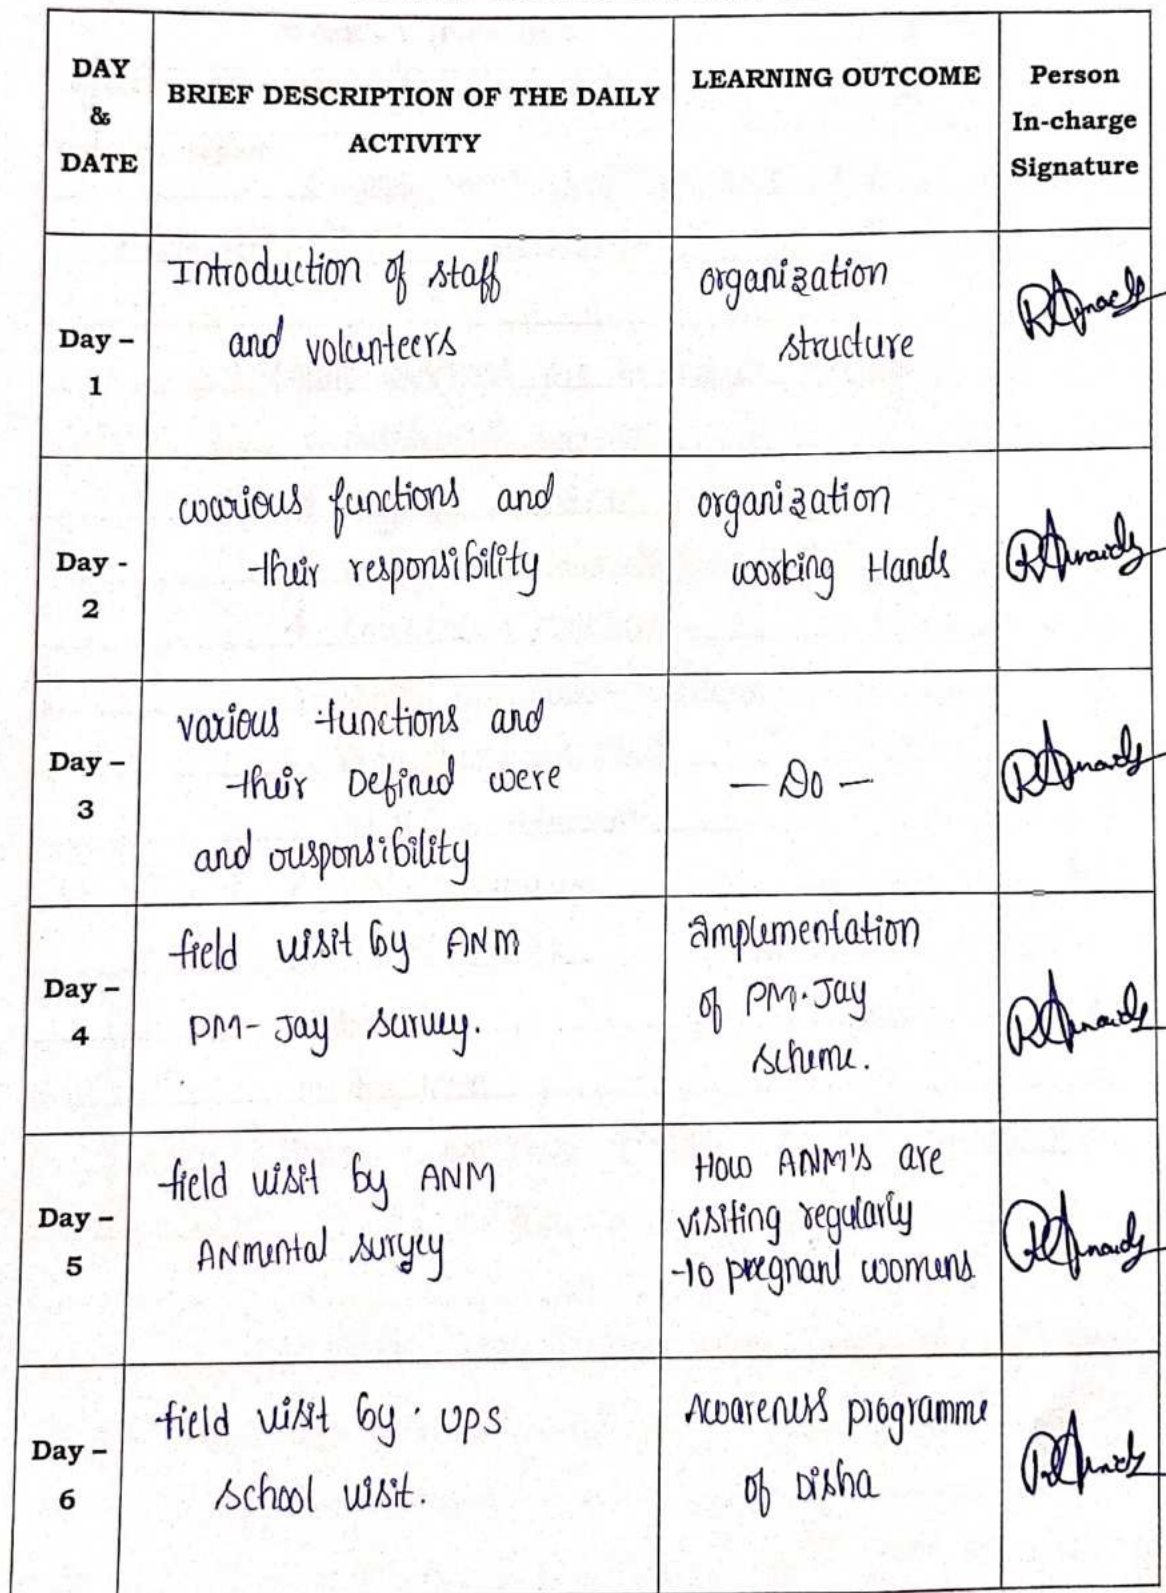 DAY & DATE
BRIEF DESCRIPTION OF THE DAILY ACTIVITY
LEARNING OUTCOME
Person In-charge Signature
Day – 1
Introduction of staff
and volunteers
organization
structure
Day - 2
various functions and
their responsibility
organization
working Hands
Day – 3
various functions and
their Defined were
and ousponsibility
— Do —
Day – 4
field visit by ANM
PM-Jay survey.
implementation
of PM.Jay
scheme.
Day – 5
field visit by ANM
ANmental survey
How ANM'S are
visiting regularly
to pregnant womens
Day – 6
field visit by . UPS
school visit.
Awareness programme
of Disha